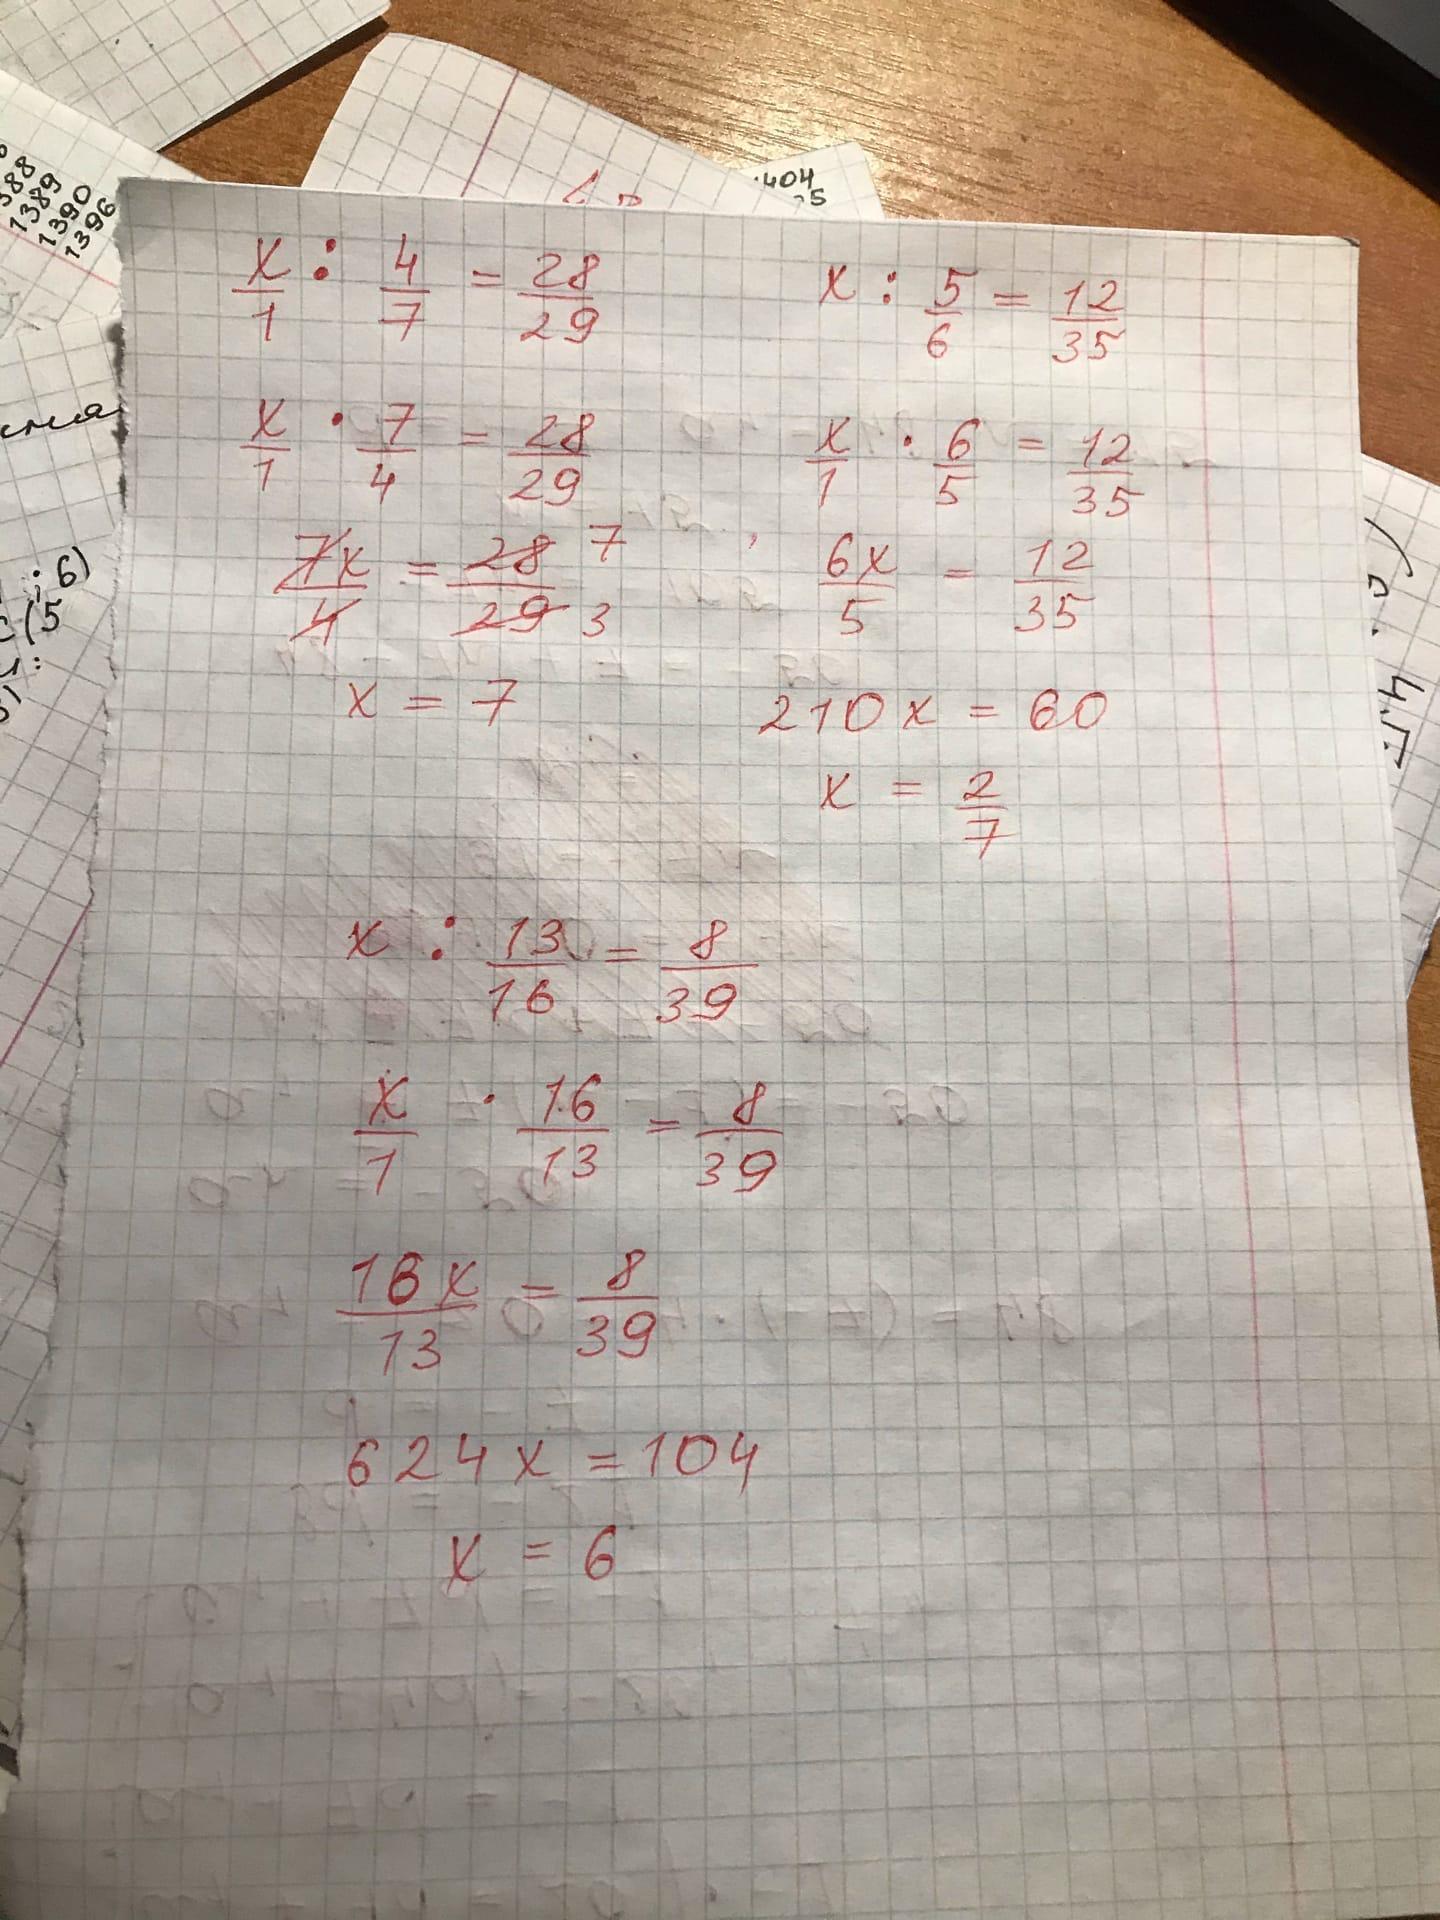 388
1389
1390
1396
404
5
x/1 : 4/7 = 28/29
x/1 · 7/4 = 28/29
7x/4 = 28/29 7 3
x = 7
x : 5/6 = 12/35
x/1 · 6/5 = 12/35
6x/5 = 12/35
210x = 60
x = 2/7
x : 13/16 = 8/39
x/1 · 16/13 = 8/39
16x/13 = 8/39
624x = 104
x = 6
: 6)
(5